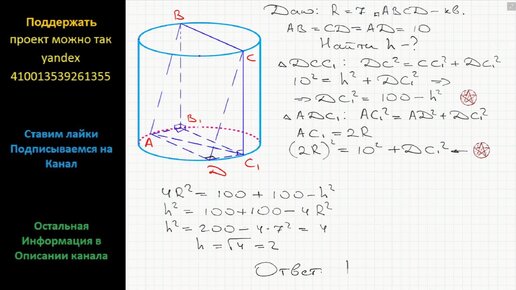 Поддержать
проект можно так
yandex
410013539261355
Ставим лайки
Подписываемся на
Канал
Остальная
Информация в
Описании канала
B
C
B₁
A
D
C₁
Дано: R = 7, ABCD – кв.
AB = CD = AD = 10
Найти h – ?
△ DCC₁: DC² = CC₁² + DC₁²
10² = h² + DC₁² ⇒
⇒ DC₁² = 100 – h²
△ ADC₁: AC₁² = AD² + DC₁²
AC₁ = 2R
(2R)² = 10² + DC₁² ←
4R² = 100 + 100 – h²
h² = 100 + 100 – 4R²
h² = 200 – 4·7² = 4
h = √4 = 2
Ответ: